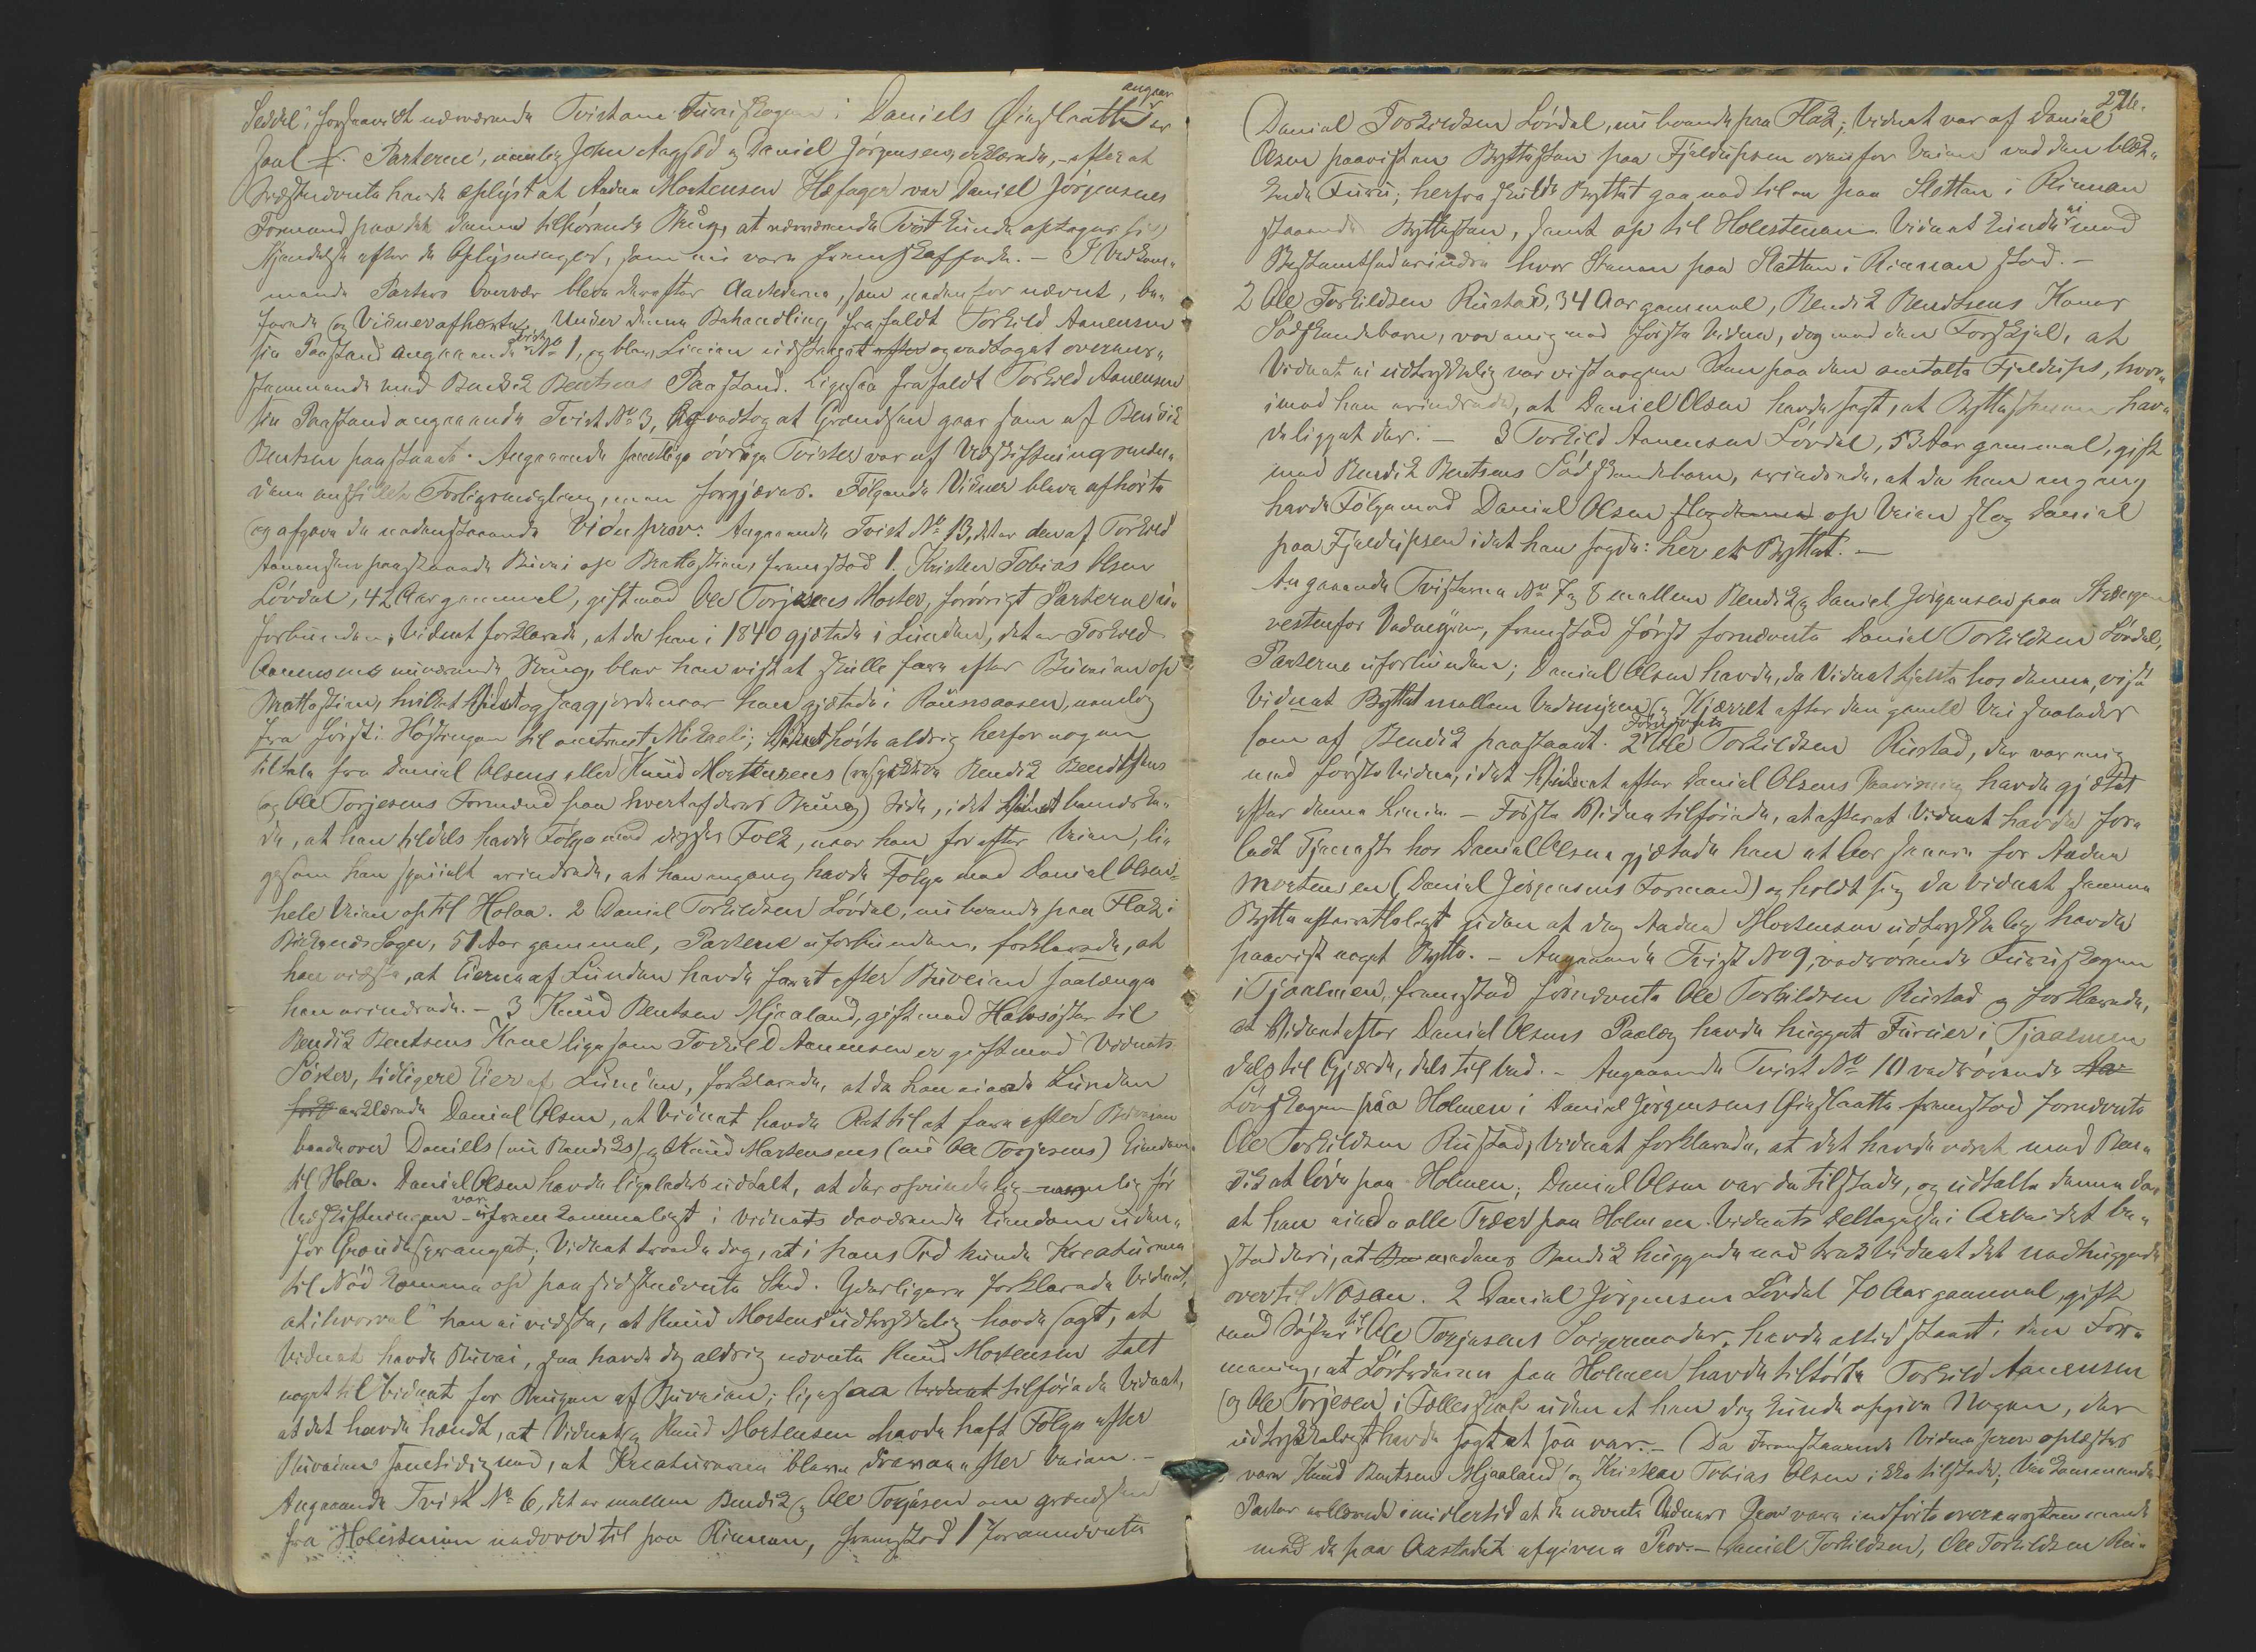 angaar
Seddel", forsaavidt nærværende Tvist om Furuskogen i Daniels Øieslaatte er
Parterne, nemlig John Aagsød og Daniel Jørgensen, erklærede, - efter at
Sidstnævnte havde oplyst at Aadne Mortensen Hæfager var Daniel Jørgensens
Formand paa det denne tilhørende Brug, at nærværende Tvist kunde optages til
Kjendelse efter de Oplysninger, som nu vare fremskaffede. - I Vedkom-
mende Parters Overvær bleve derefter Aastederne, som nedenfor nævnt, be-
farede og Vidner afhørte. Under denne Behandling frafaldt Torkild Aanensen
sin Paastand angaaende Tvist No 1, og blev Linien udstukket og vedtaget overens-
stemmende med Bendik Bentsens Paastand. Ligesaa frafaldt Torkild Aanensen
sin Paastand angaaende Tvist No 3, og vedtog at Grændsen gaar som af Bendik
Bentsen paastaaet. Angaaende samtlige øvrige Tvister var af Udskiftningsmæn-
dene anstillet Forligsmægling, men forgjæves. Følgende Vidner bleve afhørte
og afgave de nedenstaaende Vidneprov: Angaaende Tvist No 13, det er den af Torkild
Aanensen paastaaede Buvei op Brattestien, fremstod 1. Kristen Tobias Olsen
Løvdal, 42 Aar gammel, gift med Ole Torjesens Moster, forøvrigt Parterne u-
forbunden; Vidnet forklarede, at da han i 1840 gjætede i Lunden, det er Torkild
Aanensens nuværende Brug, blev han vist at skulle fare efter Buveien op
Brattestien, hvilket Vidnet ogsaa gjorde naar han gjætede i Raunaasen, nemlig
fra først i Høstningen til omtrent Mikaeli; Vidnet hørte aldrig herfor nogen
Tiltale fra Daniel Olsens eller Knud Mortensens (respektive Bendik Bendtsens
og Ole Torjesens Formænd paa hvert af deres Brug) Side, idet Vidnet bemærke-
de, at han tildels havde Følge med disses Folk, naar han for efter Veien, li-
gesom han specielt erindrede, at han engang havde Følge med Daniel Olsen
hele Veien op til Holaa. 2 Daniel Torkildsen Løvdal, nu boende paa Flak i
Birkenes Sogn, 51 Aar gammel, Parterne uforbunden, forklarede, at
han vidste, at Eierne af Lunden havde faret efter Buveien saalænge
han erindrede. - 3 Knud Bentsen Mjaaland, gift med Halvsøster til
Bendik Bentsens Kone ligesom Torkild Aanensen er gift med Vidnets
Søster, tidligere Eier af Lunden, forklarede, at da han eiede Lunden
erklærede Daniel Olsen, at Vidnet havde Ret til at fare efter Buveien
baade over Daniels (nu Bendiks) og Knud Mortensens (nu Ole Torjesens) Eiendom
til Hola. Daniel Olsen havde ligeledes udtalt, at der oprindelig - nemlig før
Udskiftningen - var ufremkommeligt i Vidnets daværende Eiendom uden-
for Grændsegangen; Vidnet troede dog, at i hans Tid kunde Kreaturerne
til Nød komme op paa sidstnævnte Sted. Yderligere forklarede Vidnet,
at ihvorvel han ei vidste, at Knud Mortensen udtrykkelig havde sagt, at
Vidnet havde Buvei, saa havde dog aldrig nævnte Knud Mortensen talt
noget til Vidnet for Brugen af Buveien; ligesaa tilføiede Vidnet,
at det havde hændt, at Vidnet og Knud Mortensen havde haft Følge efter
Buveien samtidig med, at Kreaturerne bleve drevne efter Veien. -
Angaaende Tvist No 6, det er mellem Bendik og Ole Torjesen om Grændsen
fra Holestenen nedover til paa Rimen, fremstod 1 forannævnte
291.
Daniel Torkildsen Løvdal, nu boende paa Flak; Vidnet var af Daniel
Olsen paavist en Byttesten paa Fjeldupsen ovenfor Veien ved den blek-
kede Furu; herfra skulde Byttet gaa ned til en paa Sletten i Rimen
staaende Byttesten, samt op til Holestenen. Vidnet kunde ei med
Bestemthed erindre hvor Stenen paa Sletten i Rimen stod. -
2 Ole Torkildsen Rustad, 34 Aar gammel, Bendik Bendtsens Kones
Sødskendebarn, var enig med første Vidne, dog med den Forskjel, at
Vidnet ei udtrykkelig var vist nogen Sten paa den omtalte Fjeldups, hvor-
imod han erindrede, at Daniel Olsen havde sagt, at Byttestenen hav-
de ligget der. - 3 Torkild Aanensen Løvdal, 53 Aar gammel, gift
med Bendik Bentsens Sødskendebarn, erindrede, at da han engang
havde Følge med Daniel Olsen op Veien slog Daniel
paa Fjeldupsen idet han sagde: her er Byttet. -
Angaaende Tvisterne No 7 og 8 mellem Bendik og Daniel Jørgensen paa
vestenfor Vedmyren, fremstod først fornævnte Daniel Torkildsen Løvdal,
Parterne uforbunden; Daniel Olsen havde, da Vidnet tjente hos denne, vist
Vidnet Byttet mellem Vedmyren og Kjærret efter den gamle Vei saaledes
som af Bendik paastaaet. 2 fornævnte Ole Torkildsen Rustad, der var enig
med første Vidne, idet Vidnet efter Daniel Olsens Paavisning havde gjætet
efter denne Linie. - Første Vidne tilføiede, at efterat Vidnet havde for-
ladt Tjeneste hos Daniel Olsen gjætede han et Aar senere for Aadne
Mortensen (Daniel Jørgensens Formand) og holdt sig da Vidnet samme
Bytte efterrettelegt uden at dog Aadne Mortensen udtrykkelig havde
paavist noget Bytte. - Angaaende Tvist No 9, vedrørende Furuskogen
i Tjaalmen, fremstod fornævnte Ole Torkildsen Rustad og forklarede,
at Vidnet efter Daniel Olsens Paalæg havde hugget Furuer i Tjaalmen
dels til Gjærde, dels til Ved. - Angaaende Tvist No 10 vedrørende
Løvskogen paa Holmen i Daniel Jørgensens Øieslaatte fremstod fornævnte
Ole Torkildsen Rustad; Vidnet forklarede, at det havde været med Ben-
dik at løve paa Holmen; Daniel Olsen var da tilstede, og udtalte denne da
at han eiede alle Træer paa Holmen. Vidnets Deltagelse i Arbeidet be-
stod deri, at medens Bendik huggede ned trak Vidnet det nedhuggede
over til Nosen. 2 Daniel Jørgensen Løvdal 70 Aar gammel, gift
med Søster til Ole Torjesens Svigermoder, havde altid staaet i den For-
mening, at Løvtræerne paa Holmen havde tilhørt Torkild Aanensen
og Ole Torjesen i Fællesskab uden at han dog kunde opgive Nogen, der
udtrykkeligt havde sagt at saa var. - Da Foranstaaende Vidneprov oplæstes
vare Knud Bentsen Mjaaland og Kristen Tobias Olsen ikke tilstede; Vedkommende
Parter erklærede imidlertid at de nævnte Vidners Prov vare indførte overensstemmende
med de paa Aastedet afgivne Prov. - Daniel Torkildsen, Ole Torkildsen Ru-